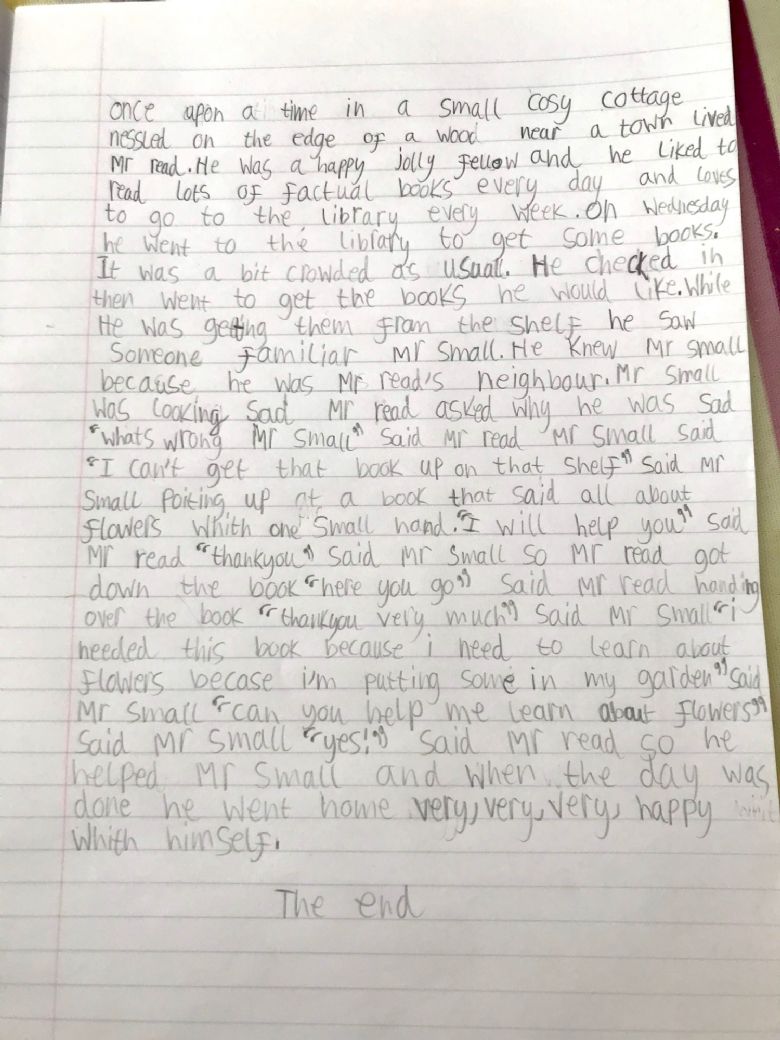 once apon a time in a small cosy cottage
nessled on the edge of a wood near a town lived
Mr read. He was a happy jolly fellow and he liked to
read lots of factual books every day and loves
to go to the library every week. On Wednesday
he went to the library to get some books.
It was a bit crowded as usuall. He checked in
then went to get the books he would like. While
He was getting them from the shelf he saw
Someone familiar Mr small. He knew Mr small
because he was Mr read's neighbour. Mr small
was looking sad Mr read asked why he was sad
"whats wrong Mr Small" said Mr read Mr Small said
"I can't get that book up on that shelf" said Mr
Small poiting up at a book that said all about
flowers whith one small hand. "I will help you" said
Mr read "thankyou" said Mr small so Mr read got
down the book "here you go" said Mr read handing
over the book "thankyou very much" said Mr small "i
needed this book because i need to learn about
flowers becase i'm putting some in my garden" said
Mr small "can you help me learn about flowers"
said Mr small "yes!" said Mr read so he
helped Mr small and when the day was
done he went home very, very, very, happy
whith himself.
The end